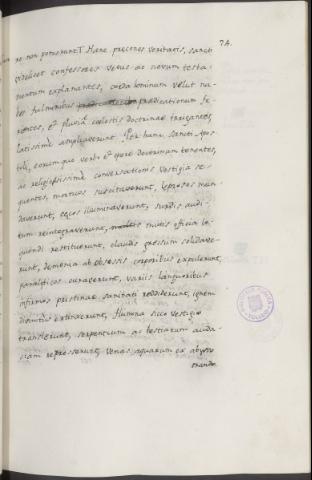 74.
re non potuerunt. Hanc precones veritatis, sancti
videlicet confessores vetus ac novum testa-
mentum explanantes, corda hominum velut nu-
bes fulminibus praedicationum fe-
rientes, et pluvia coelestis doctrinae irrigantes,
latissime ampliaverunt. Per hanc sancti Apos-
toli, eorumque verbo et opere doctrinam tenentes,
ac religiosissimae conversationis vestigia se-
quentes, mortuos suscitaverunt, leprosos mun-
daverunt, cęcos illuminaverunt, surdis audi-
tum reintegraverunt, mutis officia lo-
quendi restituerunt, claudis gressum solidave-
runt, demonia ab obsessis corporibus expulerunt,
paraliticos curaverunt, variis languoribus
infirmos pristinae sanitati reddiderunt, ignem
divinitus extinxerunt, flumina sicco vestigio
transierunt, serpentium ac bestiarum auda-
ciam represserunt, venas aquarum ex abysso